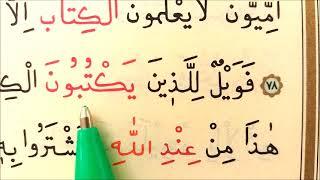 اُمِّيُّونَ لَا يَعْلَمُونَ الْكِتَابَ اِلَّٓا
٧٨ فَوَيْلٌ لِلَّذ۪ينَ يَكْتُبُونَ الْكِ
هٰذَا مِنْ عِنْدِ اللّٰهِ لِيَشْتَرُوا بِه۪